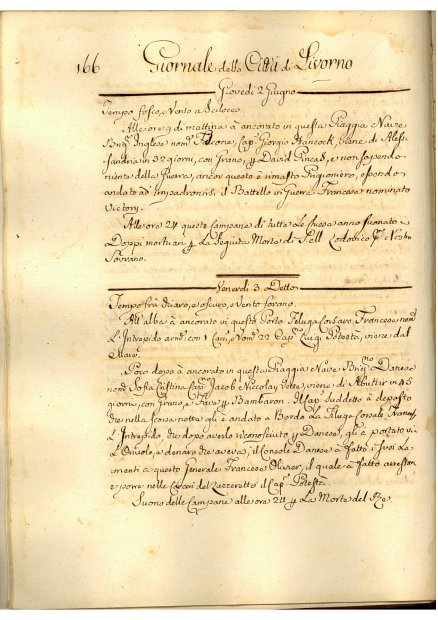 166 Giornale della Città di Livorno
Giovedì 2 Giugno
Tempo fosco, e Vento a Scilocco
Alle ore 9 di mattina è ancorato in questa Piaggia Nave
Brig. Inglese nom. Falcone, Cap. Giorgio Hancock, viene di Aless-
sandria in 32 giorni, con Grano, p David Pincas, e non sapendo
niente della Guerra, ancor questo è rimasto Prigioniero, essendo
andato ad impadronirsi, il Battello in Guerra Francese nominato
Victory.
Alle ore 24 queste Campane di tutte le Chiese anno suonato a
Doppi mortuari p La Seguita Morte di S. M. Lodovico P.º Nostro
Sovrano.
Venerdì 3. Detto
Tempo fra chiaro, e oscuro, e vento forano.
All'alba è ancorato in questo Porto Feluga Corsaro Francese nom.
L'Intrepido arm. con 1 Can, e Nom. 22 Cap. Luigi Potestà, viene dal
Mare.
Poco dopo è ancorato in questa Piaggia Nave Brig.no Danese
nom. Sofia Cristina Cap. Jacob Niccolay Vette, viene di Abutir in 45
giorni, con Grano, e Fave p Bambaron. Il Cap. suddetto à deposto
che nella scorsa notte gli è andato a Bordo La Feluga Corsale Francese
L'Intrepido, che dopo averlo riconosciuto p Danese, gli à portato via
L'Oriuolo, e denaro che aveva, il Console Danese à fatto i suoi La-
menti a questo Generale Francese Olivier, il quale à fatto arrestare
e porre nelle Carceri del Lazzeretto il Cap. Potestà.
Suono delle Campane alle ore 24 p La Morte del Re